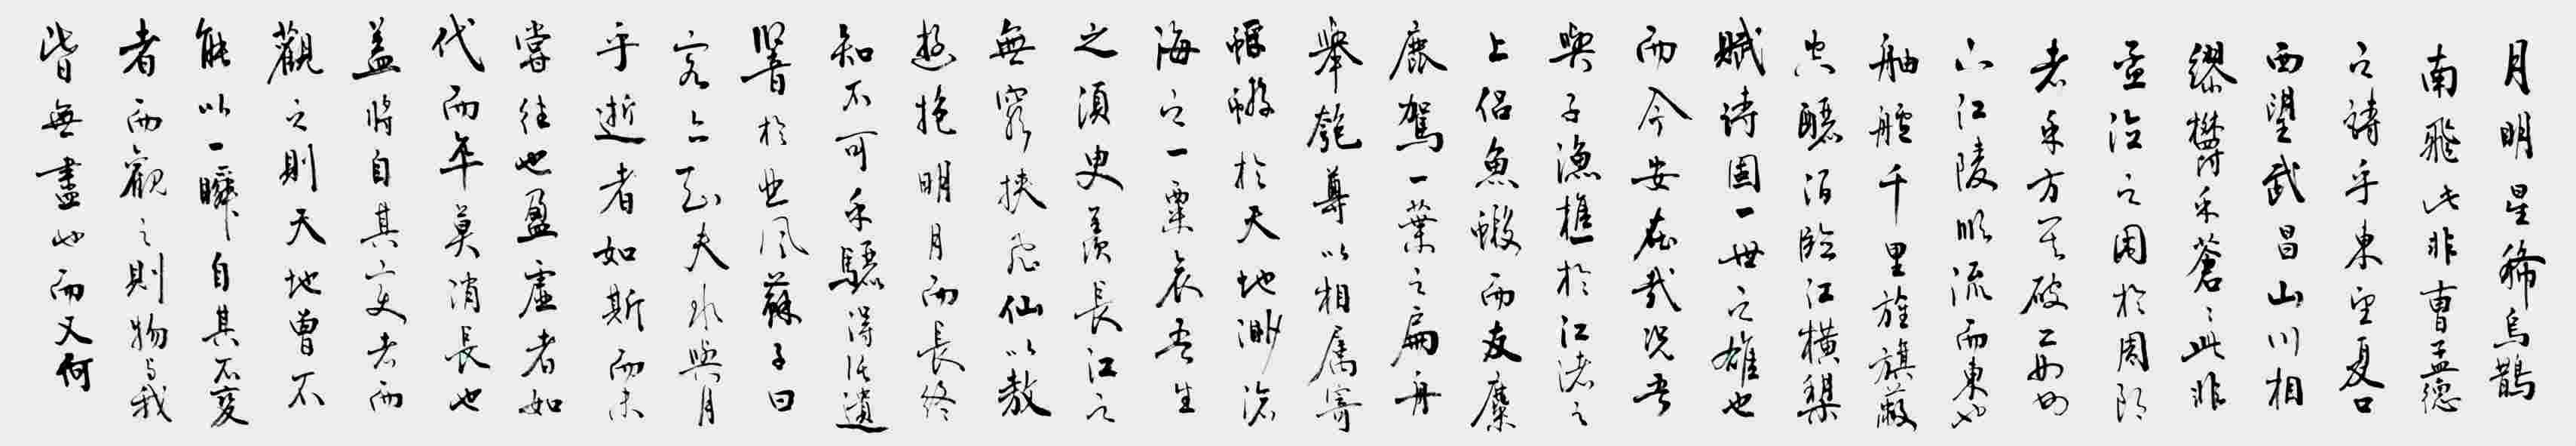 月明星稀烏鵲
南飛此非曹孟德
之詩乎東望夏口
西望武昌山川相
繆欝乎蒼〻此非
孟德之困於周郎
者乎方其破荊州
下江陵順流而東也
舳艫千里旌旗蔽
空釃酒臨江橫槊
賦詩固一世之雄也
而今安在哉況吾
與子漁樵於江渚之
上侶魚蝦而友麋
鹿駕一葉之扁舟
舉匏尊以相属寄
蜉蝣於天地渺滄
海之一粟哀吾生
之須臾羨長江之
無窮挾飛仙以遨
遊抱明月而長終
知不可乎驟得託遺
響於悲風蘇子曰
客亦知夫水與月
乎逝者如斯而未
嘗往也盈虛者如
代而卒莫消長也
蓋將自其變者而
觀之則天地曾不
能以一瞬自其不變
者而觀之則物与我
皆無盡也而又何